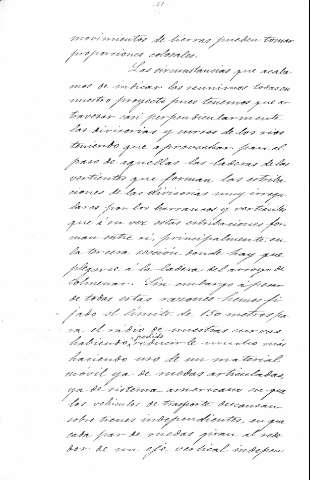 movimientos de tierras pueden tomar
proporciones colosales.
Las circunstancias que acaba
mos de indicar las reunimos todas en
nuestro proyecto pues tenemos que a-
travesar casi perpendicularmente
las divisorias y cursos de los rios
teniendo que aprovechar para el
paso de aquellas las laderas de las
vertientes que forman las estriba-
ciones de las divisorias muy irregu-
lares por los barrancos y vertientes
que á su vez estas estribaciones for-
man entre si, principalmente en
la tercera seccion donde hay que
plegarse á la ladera del arroyo de
Colmenar. Sin embargo á pesar
de todas estas razones hemos fi-
jado el límite de 150 metros pa
ra el rádio de nuestras curvas
habiendo podido reducirle mucho más
haciendo uso de un material
móvil ya de ruedas articuladas,
ya de sistema americano en que
los vehículos de trasporte descansan
sobre trenes independientes, en que
cada par de ruedas giran al rede-
dor de un eje vertical indepen